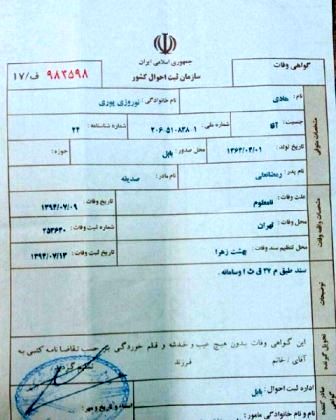 جمهوری اسلامی ایران
سازمان ثبت احوال کشور
گواهی وفات
ف/۱۷ ۹۸۳۵۹۸
نام: هادی
نام خانوادگی: نوروزی پوری
جنسیت: آقا
شماره ملی: ۲۰۶۰۵۱۰۸۳۸۰۱
شماره شناسنامه: ۲۴
تاریخ تولد: ۱۳۶۴/۰۴/۰۱
محل صدور: بابل
حوزه:
نام پدر: رمضانعلی
نام مادر: صدیقه
علت وفات: نامعلوم
تاریخ وفات: ۱۳۹۴/۰۷/۰۹
محل وفات: تهران
شماره ثبت وفات: ۲۵۳۶۴۰
محل تنظیم سند وفات: بهشت زهرا
تاریخ ثبت وفات: ۱۳۹۴/۰۷/۱۳
سند طبق م ۲۷ ق ث ا وسامانه.
این گواهی وفات بدون هیچ عیب و خدشه و قلم خوردگی بر حسب تقاضا نامه کتبی به
آقای / خانم فرزند تسلیم گردید
اداره ثبت احوال: بابل
نام و نام خانوادگی مامور:
امضاء و تاریخ و مهر:
مشخصات متوفی
مشخصات واقعه وفات
توضیحات
تحویل گیرنده